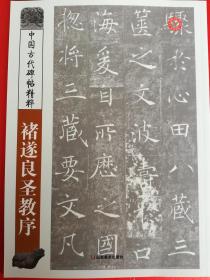 驟於心田八藏三
篋之文波濤於口
海爰自所歷之國
揔將三藏要文凡
中国古代碑帖精粹
褚遂良圣教序